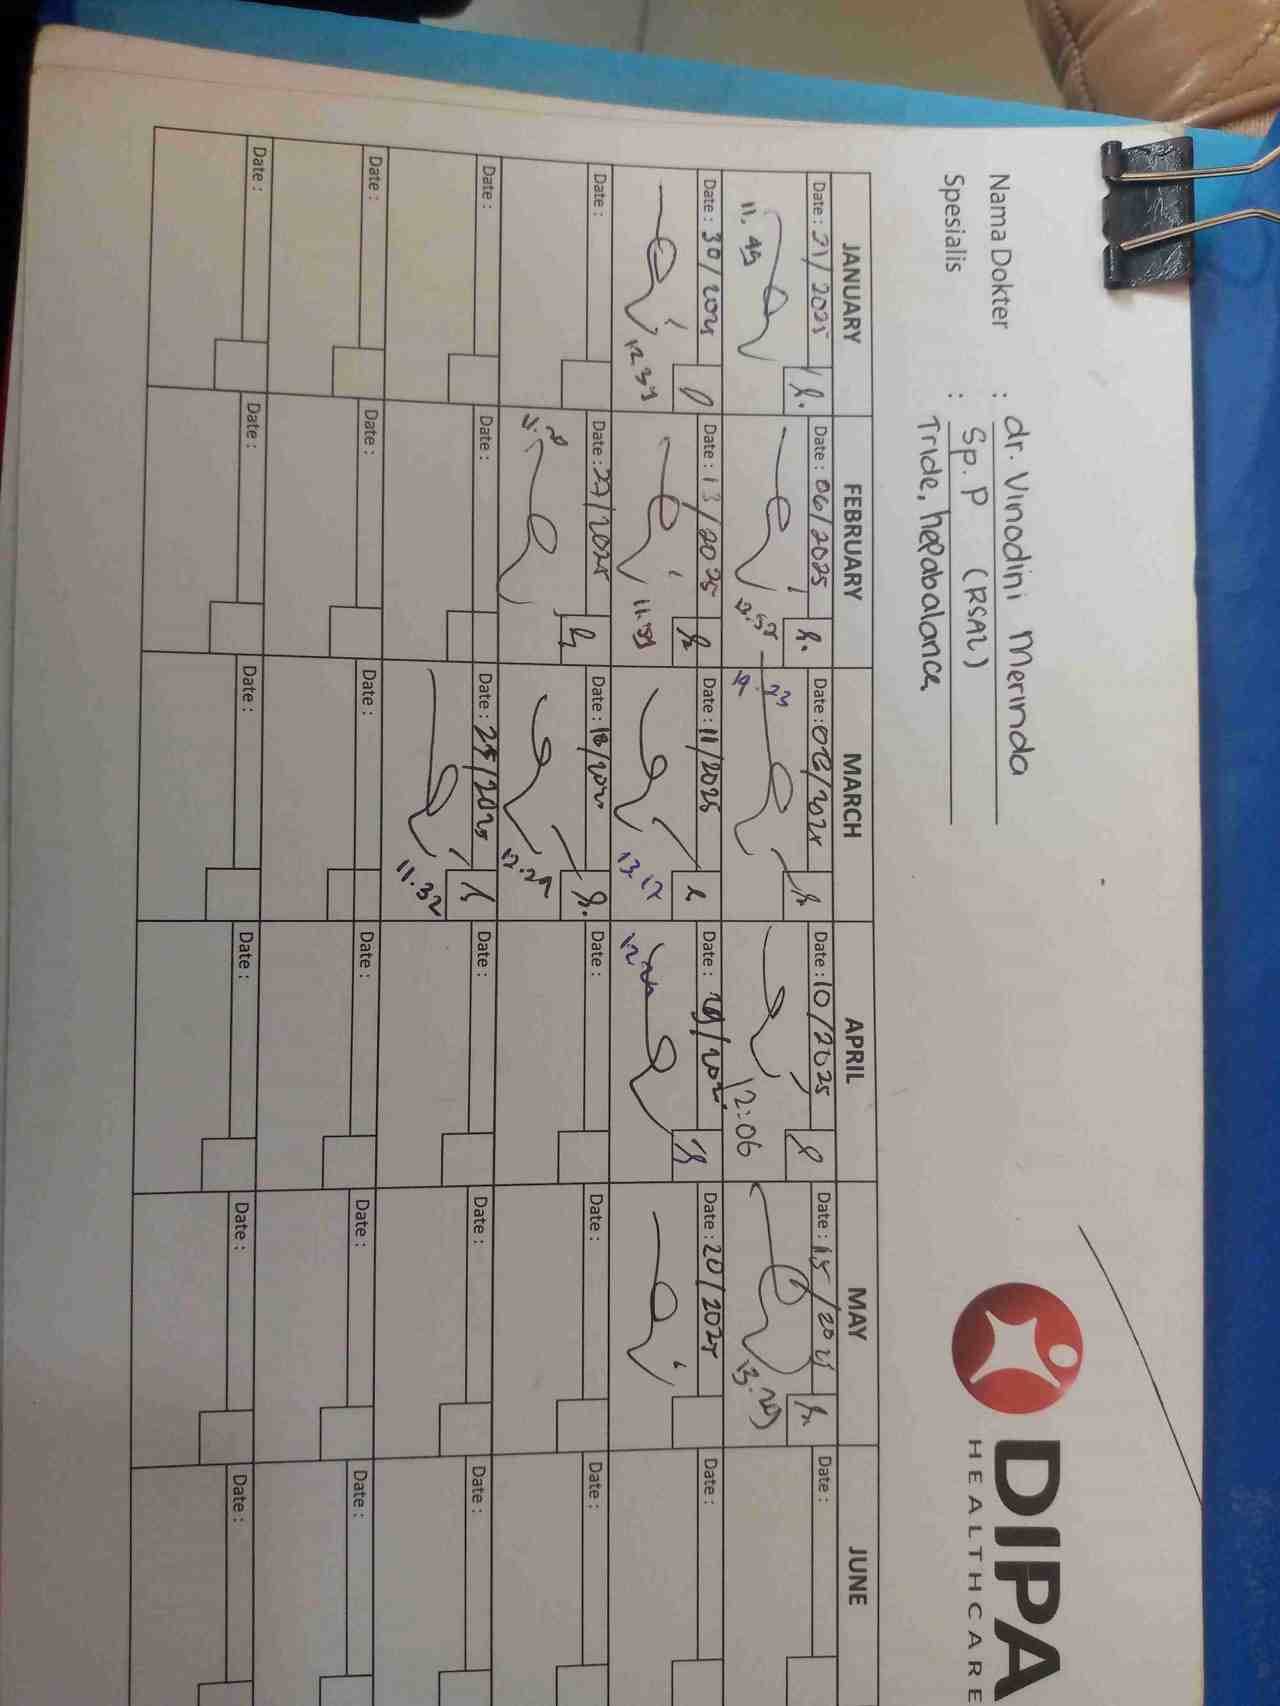 DIPA
HEALTHCARE
Nama Dokter : dr. Vinodini Merinda
Spesialis : Sp. P (RSAL)
Tride, hepabalance,
JANUARY FEBRUARY MARCH APRIL MAY JUNE
Date : 21/2025 Date : 06/2025 Date : 06/2025 Date : 10/2025 Date : 15/2025 Date :
11.49 12.57 19.23 12:06 13.29
Date : 30/2025 Date : 13/2025 Date : 11/2025 Date : Date : 20/2025 Date :
12.39 11.59 13.17
Date : Date : 27/2025 Date : 18/202 Date : Date : Date :
12.29
Date : Date : Date : 25/2025 Date : Date : Date :
11.32
Date : Date : Date : Date : Date : Date :
Date : Date : Date : Date : Date :